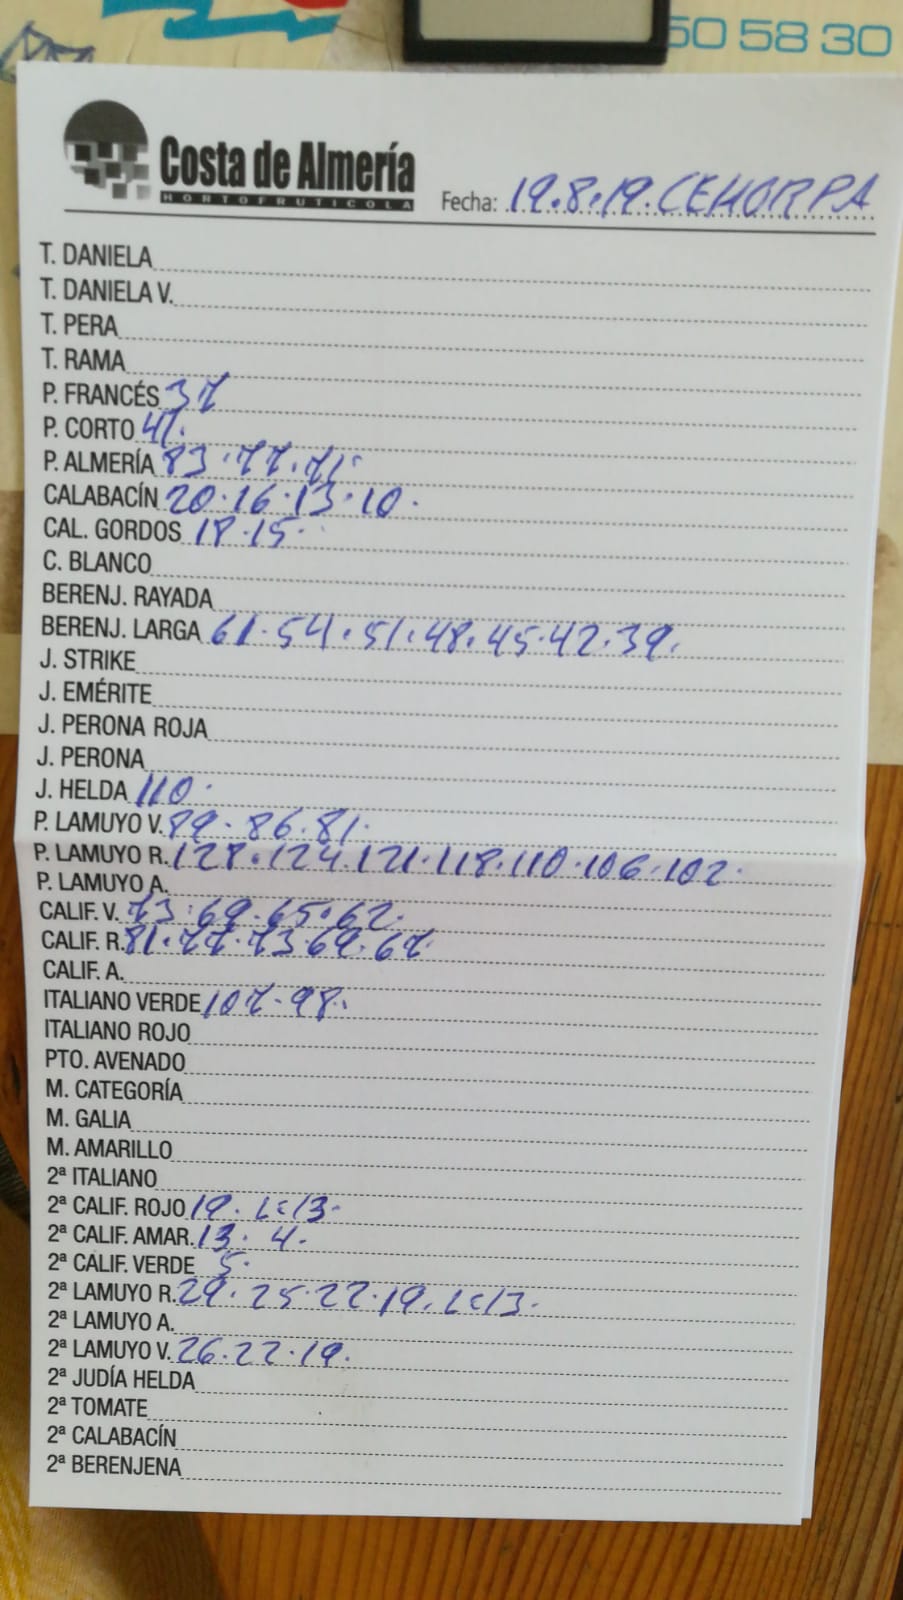 50 58 30
Costa de Almería
HORTOFRUTICOLA
Fecha: 19.8.19. CEHORPA
T. DANIELA
T. DANIELA V.
T. PERA
T. RAMA
P. FRANCÉS 37
P. CORTO 41.
P. ALMERÍA 83.77.71.
CALABACÍN 20.16.13.10.
CAL. GORDOS 18.15.
C. BLANCO
BERENJ. RAYADA
BERENJ. LARGA 61.54.51.48.45.42.39.
J. STRIKE
J. EMÉRITE
J. PERONA ROJA
J. PERONA
J. HELDA 110.
P. LAMUYO V. 89.86.81.
P. LAMUYO R. 128.124.121.118.110.106.102.
P. LAMUYO A.
CALIF. V. 73.69.65.62.
CALIF. R. 81.77.73.69.67
CALIF. A.
ITALIANO VERDE 107.98.
ITALIANO ROJO
PTO. AVENADO
M. CATEGORÍA
M. GALIA
M. AMARILLO
2ª ITALIANO
2ª CALIF. ROJO 19. L=13.
2ª CALIF. AMAR. 13. 4.
2ª CALIF. VERDE 5.
2ª LAMUYO R. 29.25.22.19. L=13.
2ª LAMUYO A.
2ª LAMUYO V. 26.22.19.
2ª JUDÍA HELDA
2ª TOMATE
2ª CALABACÍN
2ª BERENJENA